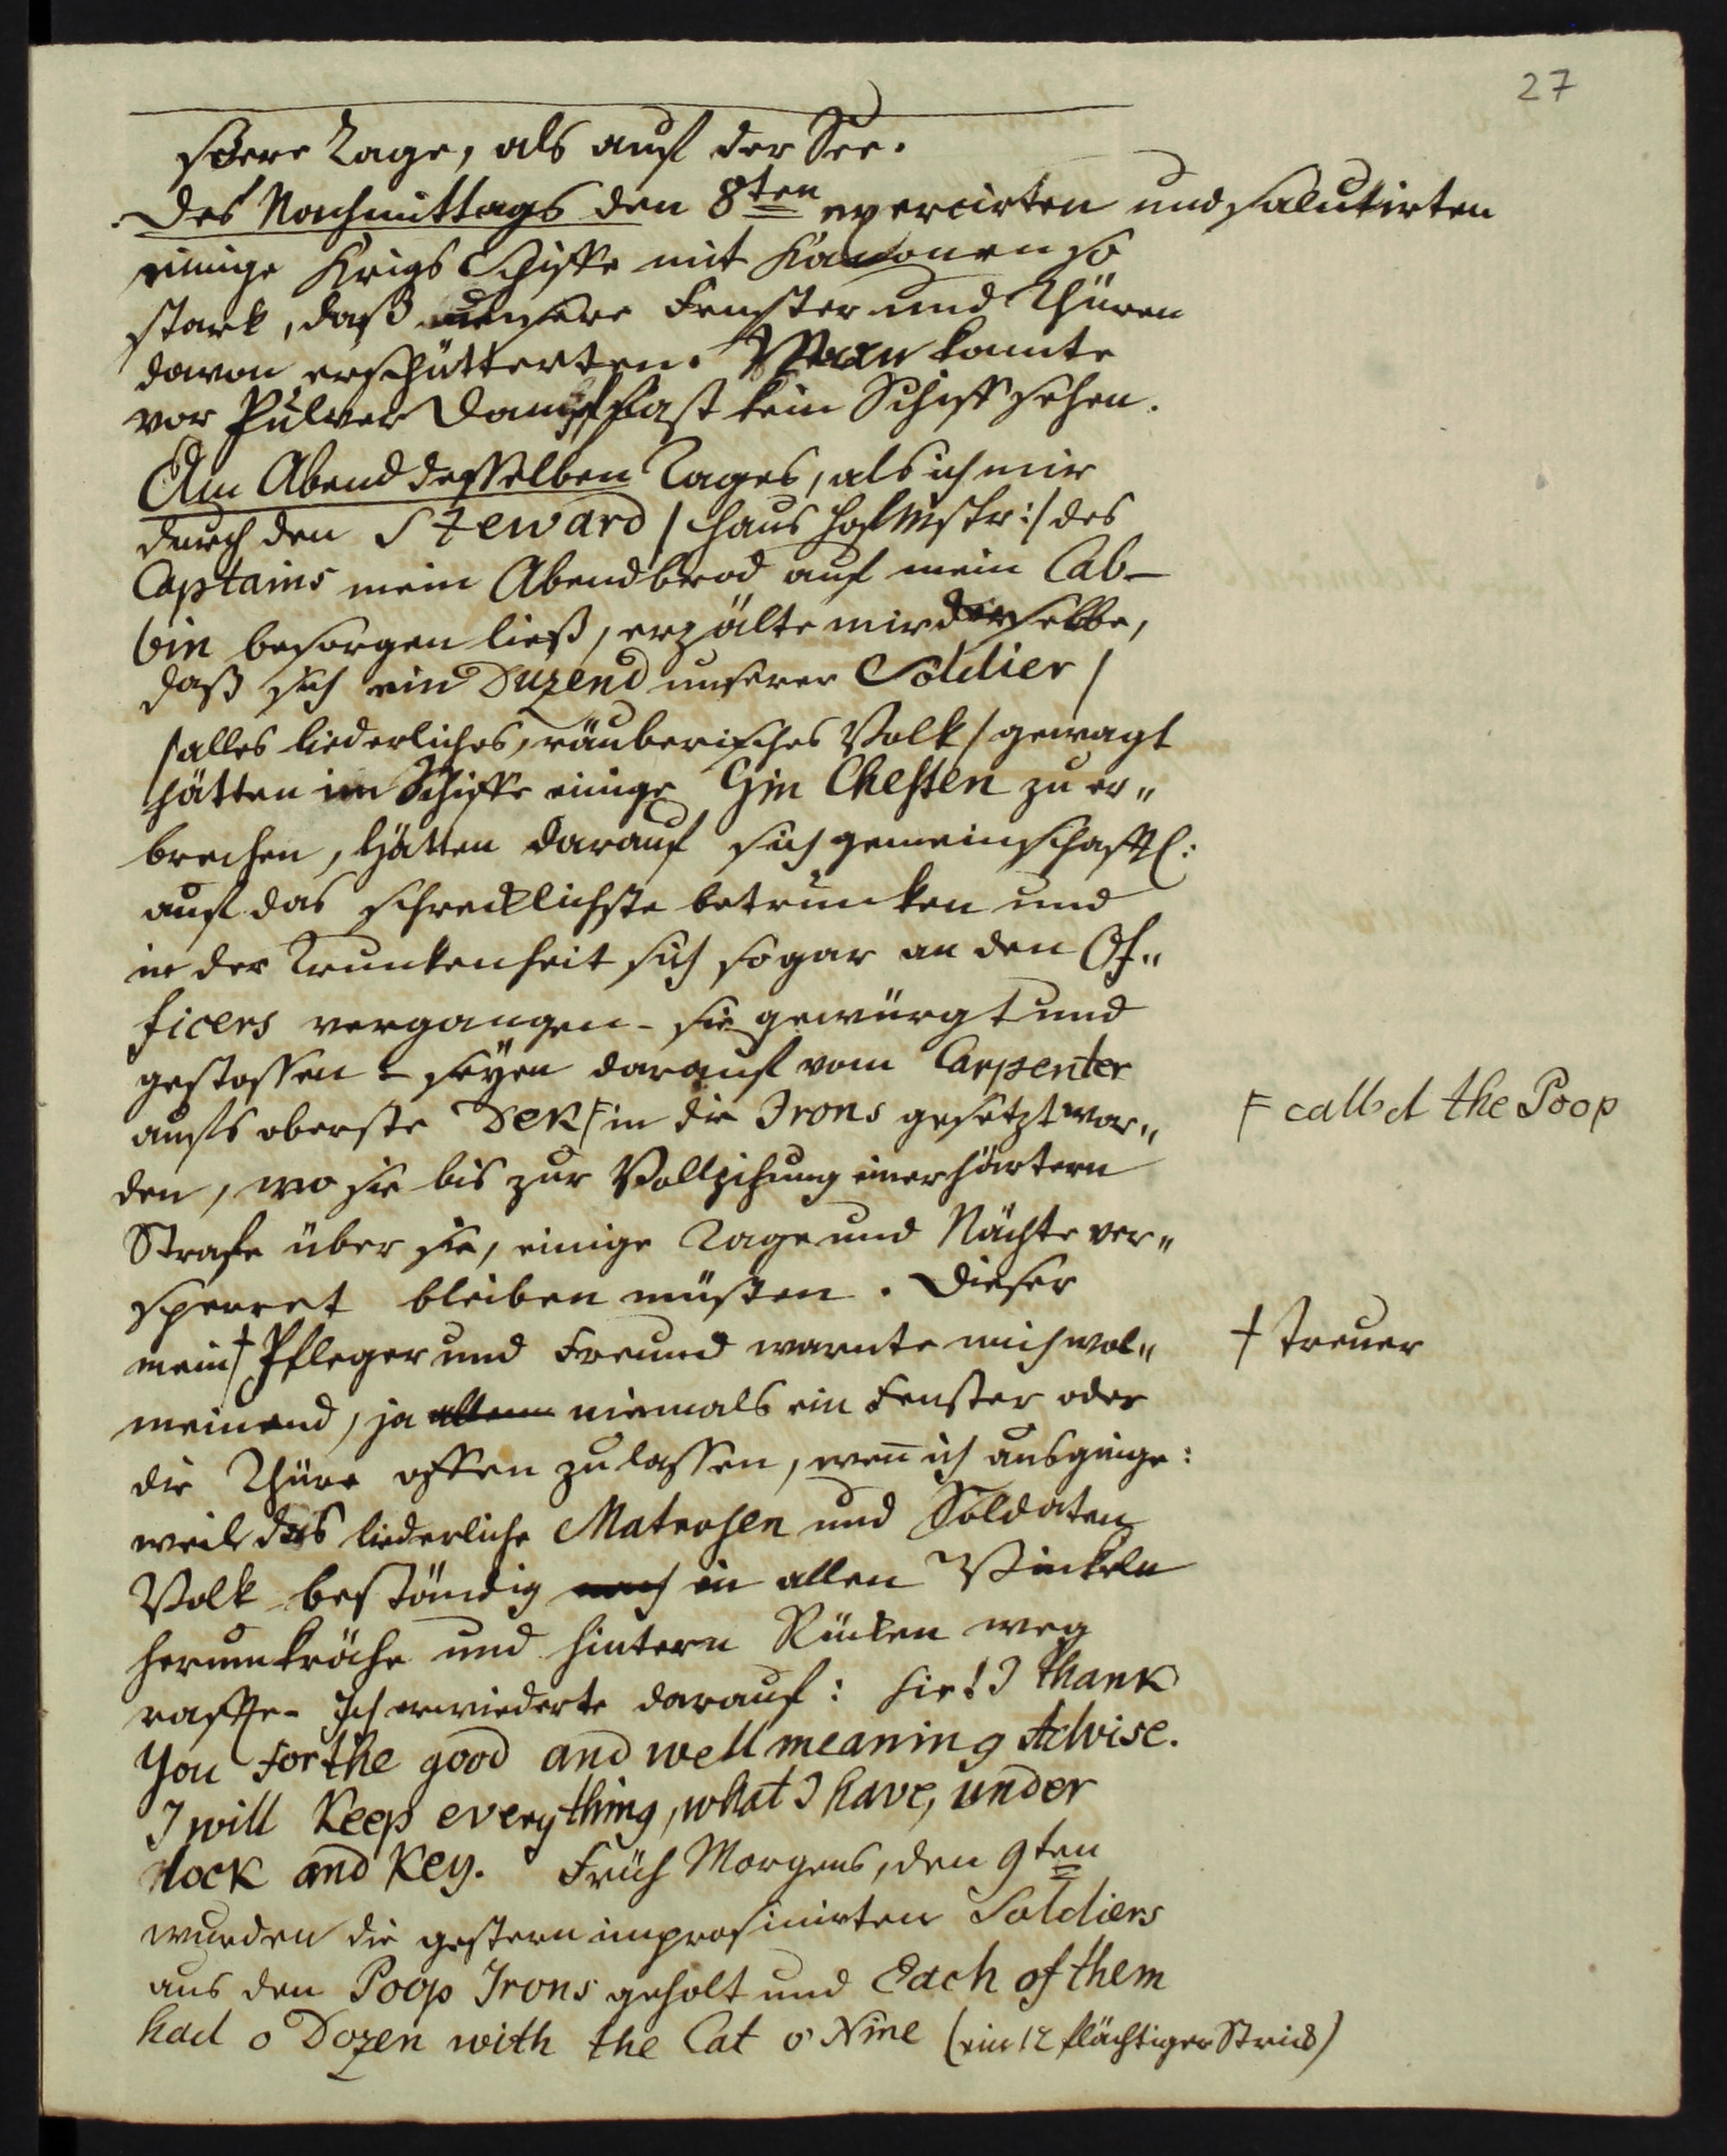 27
ßere Tage, als auf der See.
Des Nachmittags den 8ten exercirten und salutirten
einige Krigs Schiffe mit Kanonen so
stark, daß unsere Fenster und Thüren
davon erschütterten. Man konnte
vor Pulver Dampf fast kein Schiff sehen.
Am Abend desselben Tages, als ich mir
durch den Steward /: Haus Hofmstr:/ des
Captains mein Abendbrod auf mein Cab-
bin besorgen ließ, erzälte mir derselbe,
daß sich ein Duzend unserer Soldier /
/ alles liederliches, räuberisches Volk / gewagt
hätten im Schiffe einige Gin Chesten zu er„
brechen, hätten darauf sich gemeinschaftl:
auf das schrecklichste betrunken und
in der Trunkenheit sich sogar an den Of„
ficers vergangen - sie gewürgt und
gestossen - seyen darauf vom Carpenter
aufs oberste Dek F in die Irons gesetzt wor„
F called the Poop
den, wo sie bis zur Vollzihung einer härtern
Strafe über sie, einige Tage und Nächte ver„
sperret bleiben müßten. Dieser
mein † Pfleger und Freund warnte mich wol„
† treuer
meinend, ja niemals ein Fenster oder
die Thüre offen zu lassen, wen̄ ich ausginge:
weil das liederliche Matrosen und Soldaten
Volk beständig in allen Winkeln
herumkröche und hintern Rücken weg
raffte - Ich erwiederte darauf: Sir! I thank
You For the good and well meaning Advise.
I will Keep every thing, what I have, under
lock and Key. Früh Morgens, den 9ten
wurden die gestern improsinirten Soldiers
aus den Poop Irons geholt und Each of them
had o Dozen with the Cat o' Nine (ein 12 flächtiger Strick)